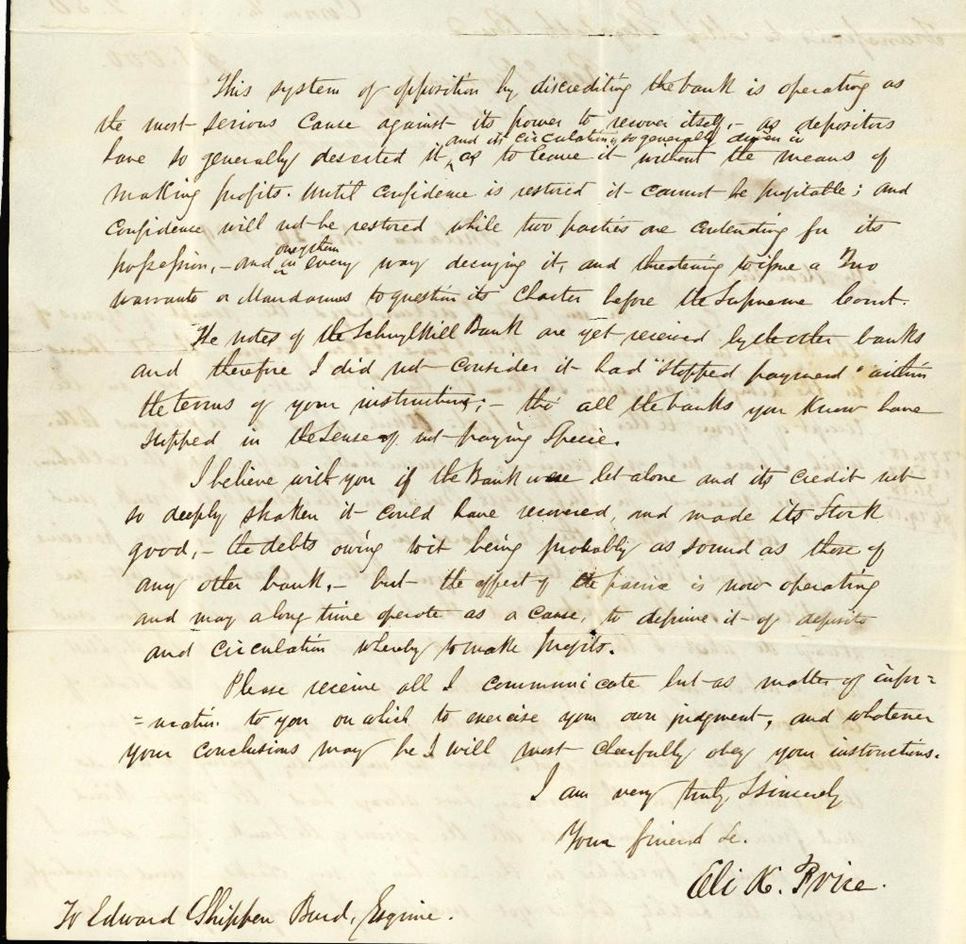 This system of opposition by discrediting the bank is operating as
the most serious cause against its power to recover itself,- as depositors
and its circulation so generally driven in
have so generally deserted it, as to leave it without the means of
making profits. Until confidence is restored it cannot be profitable; and
confidence will not be restored while two parties are contending for its
possession,- and in every way decrying it, and threatening to issue a Quo
warranto or Mandamus to question its Charter before the Supreme Court.
The notes of the Schuylkill Bank are yet received by the other banks
and therefore I did not consider it had "stopped payment" within
the terms of your instructions;- tho' all the banks you know have
stopped in the sense of not paying Specie.
I believe with you if the Bank were let alone and its credit not
so deeply shaken it could have recovered, and made its Stock
good,- the debts owing to it being probably as sound as those of
any other bank,- but the effect of the panic is now operating
and may a long time operate as a cause, to deprive it of deposits
and circulation whereby to make profits.
Please receive all I communicate but as matter of infor=
=mation to you on which to exercise your own judgment, and whatever
your conclusions may be I will most cheerfully obey your instructions.
I am very truly, & sincerely
Your friend &c.
Eli K. Price.
To Edward Shippen Burd, Esquire.